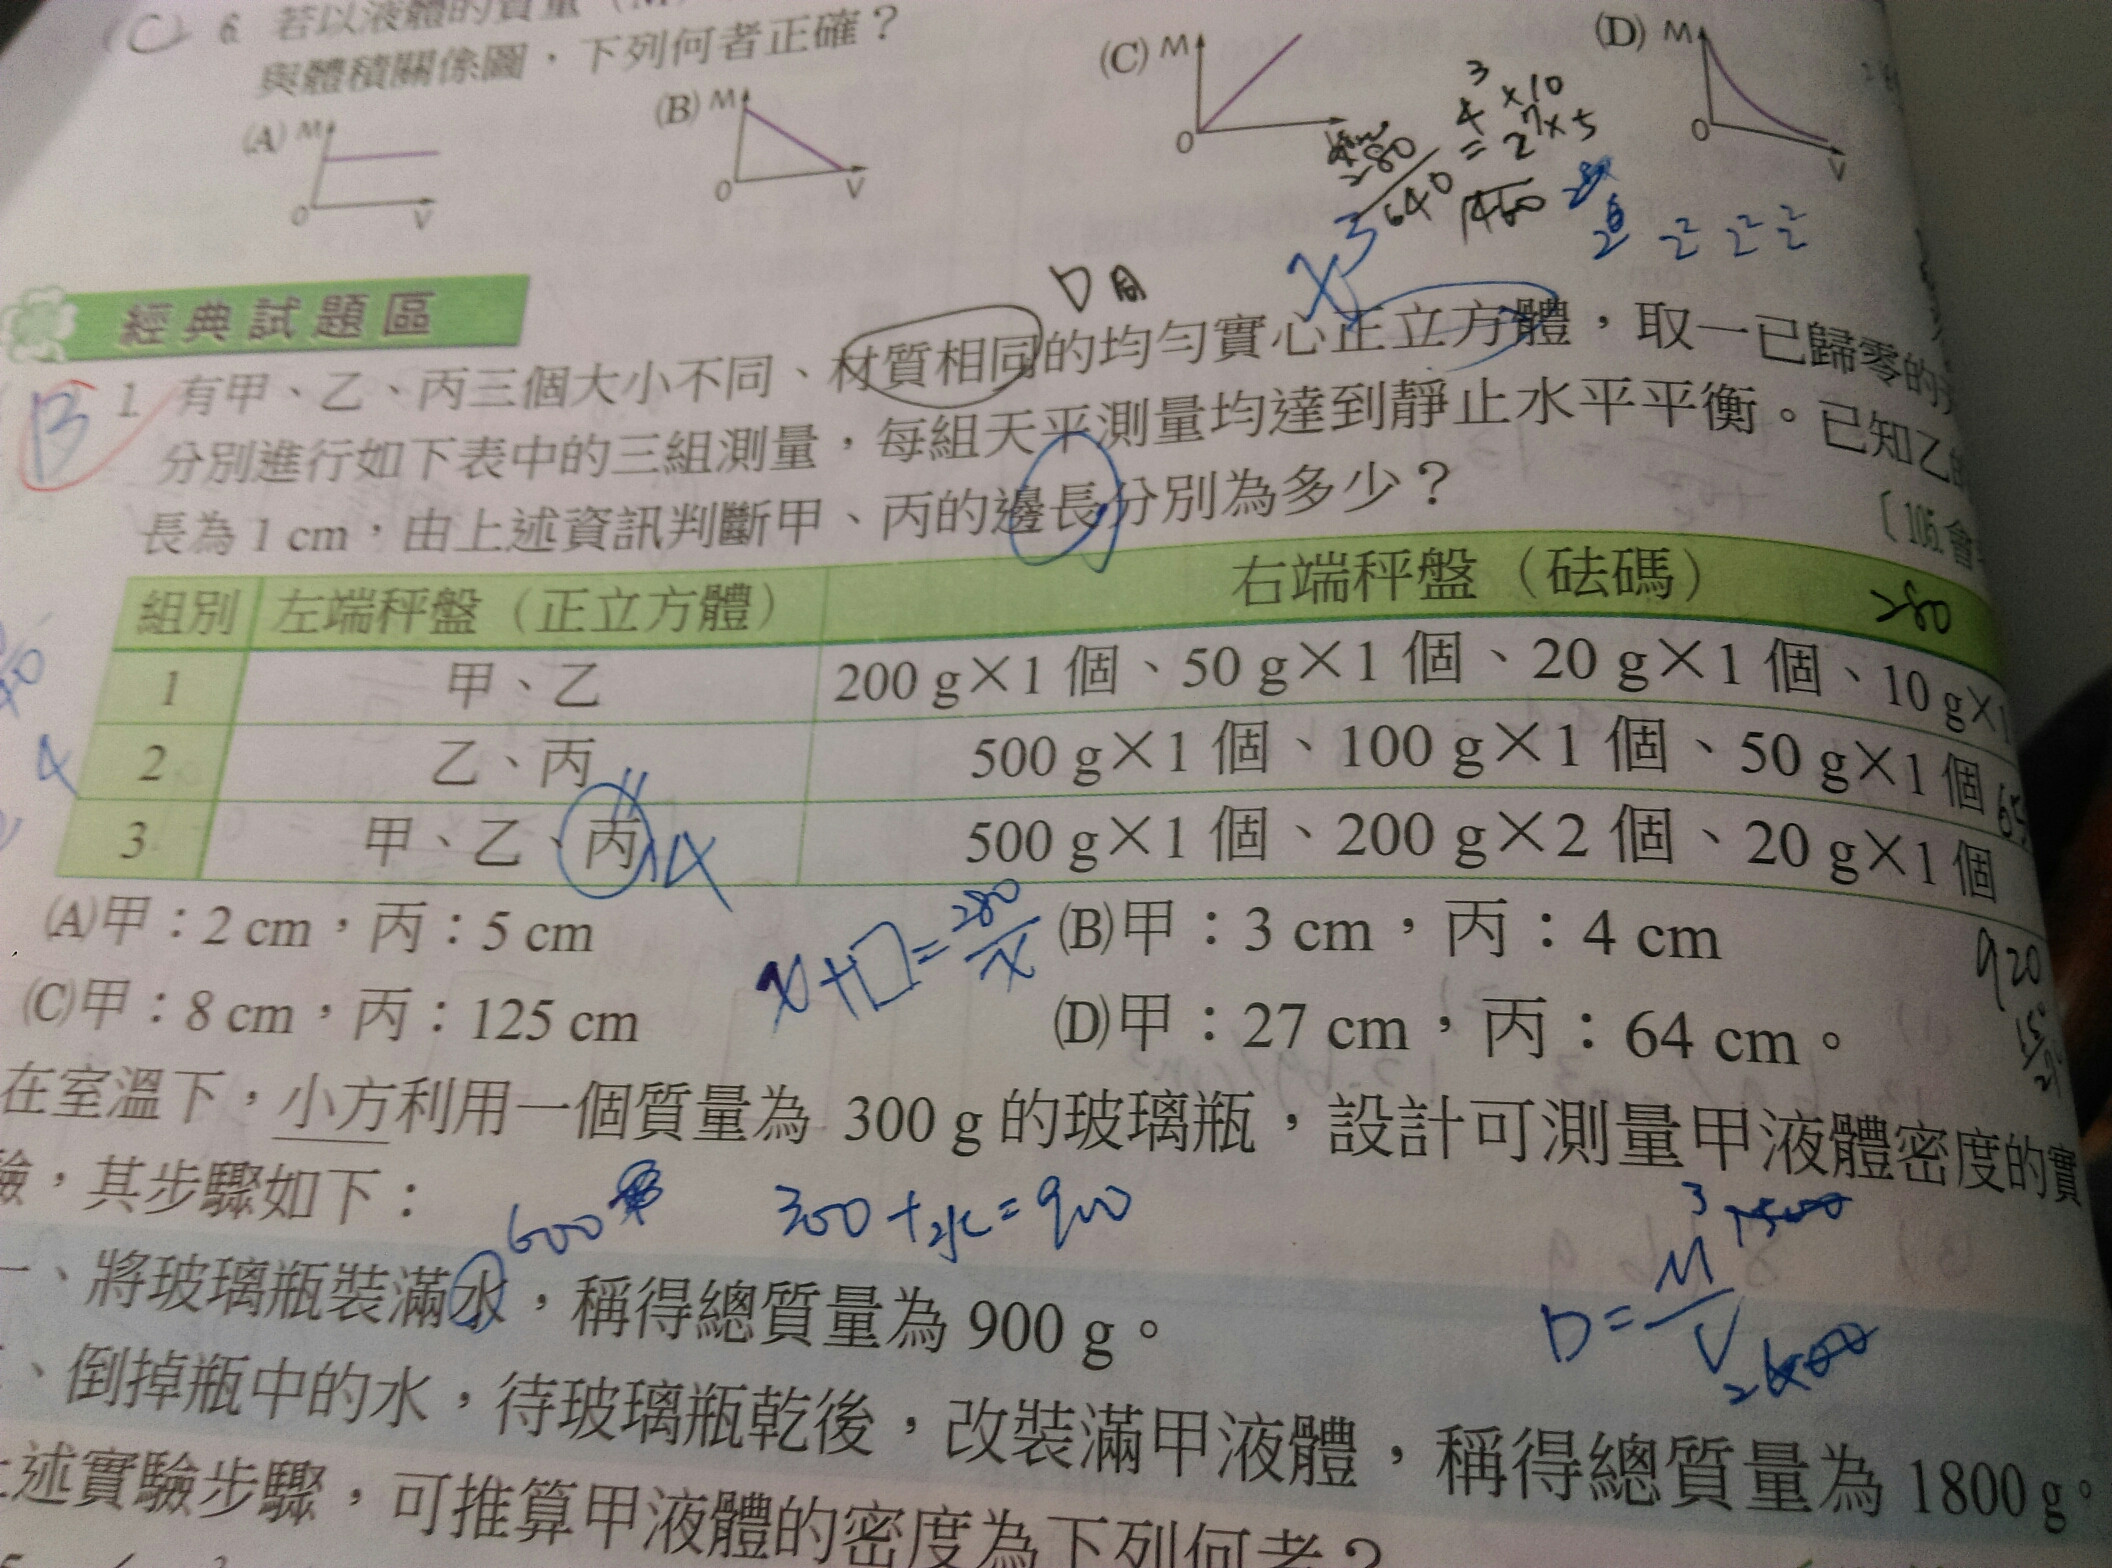 (C) 6. 若以液體的質量（M）
與體積關係圖，下列何者正確？
(A) M 0 V
(B) M 0 V
(C) M 0
(D) M 0 V
280
640
3
4 ×10
= 2 7×5
1460
D 同
經典試題區
B 1. 有甲、乙、丙三個大小不同、材質相同的均勻實心正立方體，取一已歸零的天
分別進行如下表中的三組測量，每組天平測量均達到靜止水平平衡。已知乙的
長為 1 cm，由上述資訊判斷甲、丙的邊長分別為多少？
〔105.會
組別 左端秤盤（正立方體） 右端秤盤（砝碼）
280
1 甲、乙 200 g×1 個、50 g×1 個、20 g×1 個、10 g×1
2 乙、丙 500 g×1 個、100 g×1 個、50 g×1 個
3 甲、乙、丙 500 g×1 個、200 g×2 個、20 g×1 個
920
(A)甲：2 cm，丙：5 cm (B)甲：3 cm，丙：4 cm
(C)甲：8 cm，丙：125 cm (D)甲：27 cm，丙：64 cm。
在室溫下，小方利用一個質量為 300 g 的玻璃瓶，設計可測量甲液體密度的實
驗，其步驟如下：
600
300 + 水 = 900
一、將玻璃瓶裝滿水，稱得總質量為 900 g。
D = M/V
、倒掉瓶中的水，待玻璃瓶乾後，改裝滿甲液體，稱得總質量為 1800 g。
述實驗步驟，可推算甲液體的密度為下列何者？